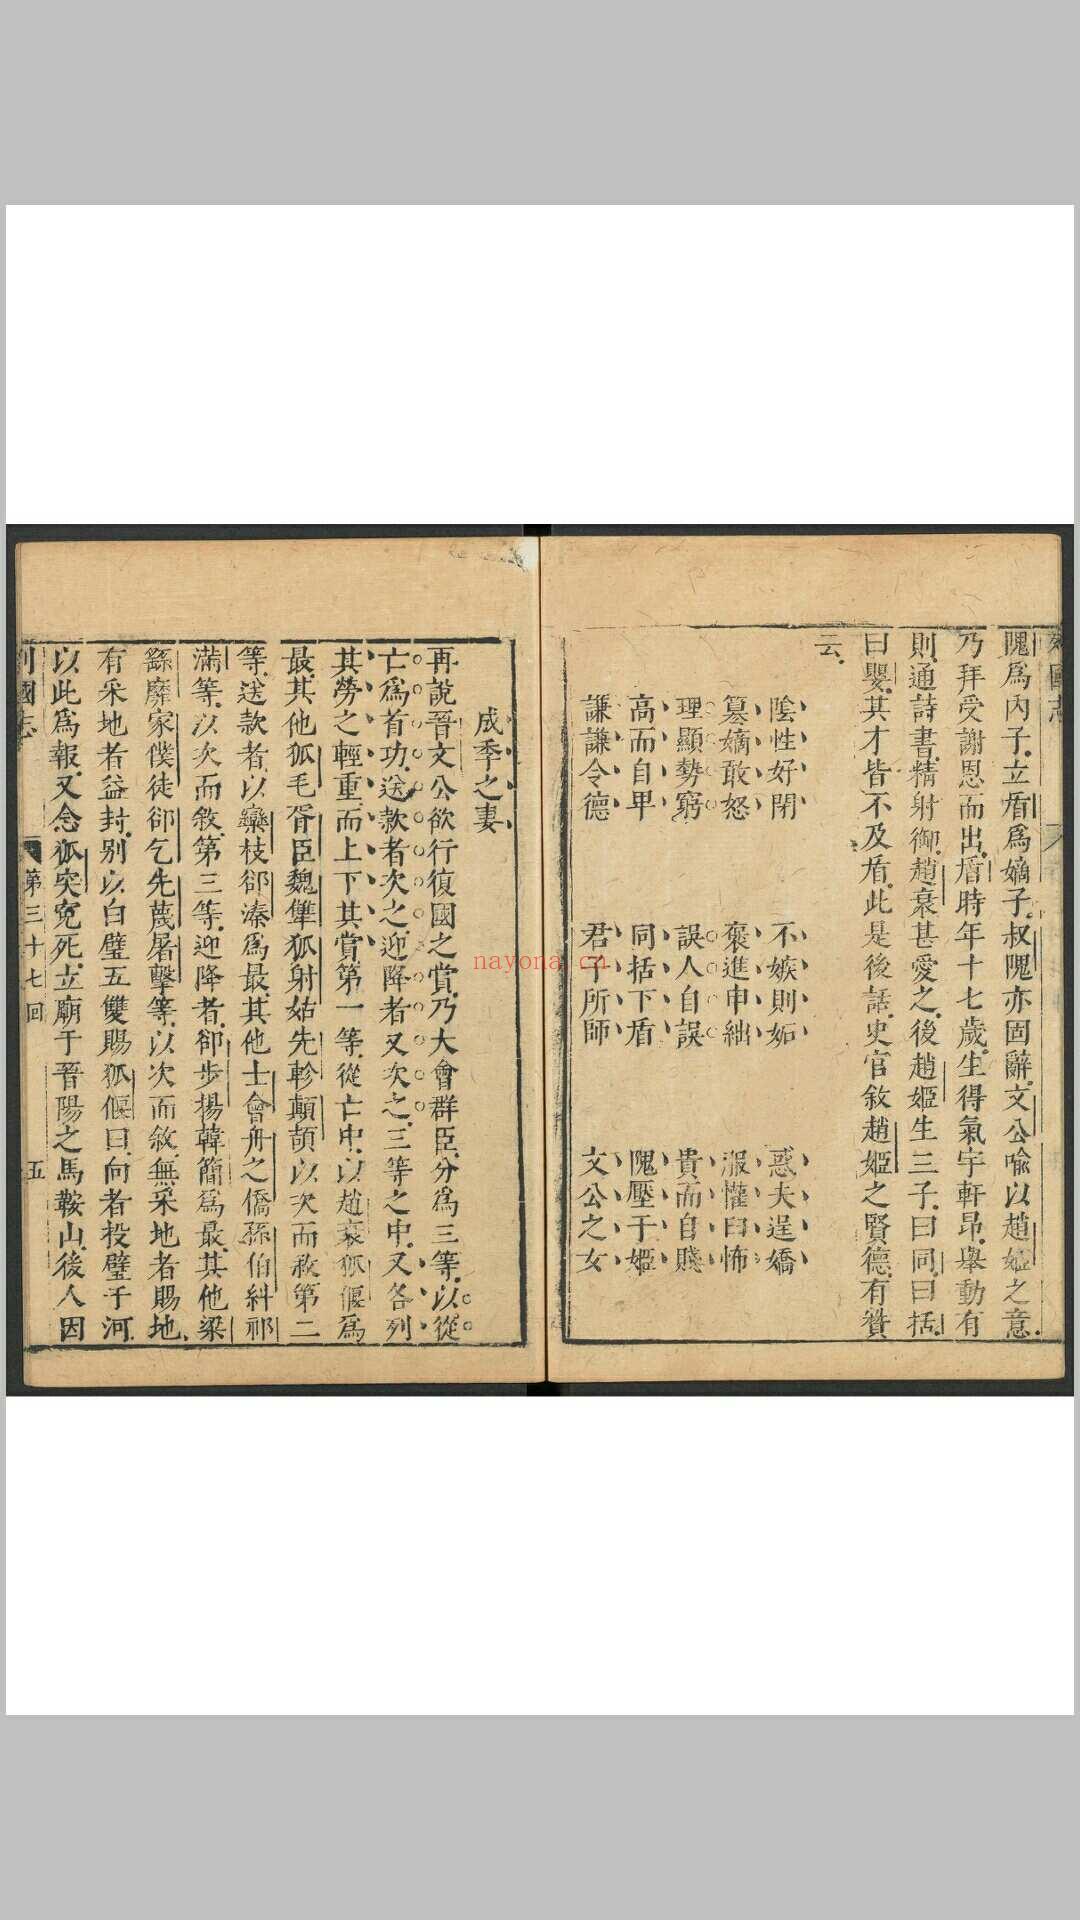 隗爲內子立盾爲嫡子叔隗亦固辭文公喩以趙姬之意
乃拜受謝恩而出盾時年十七歲生得氣宇軒昂舉動有
則通詩書精射御趙衰甚愛之後趙姬生三子曰同曰括
曰嬰其才皆不及盾此是後話史官敘趙姬之賢德有贊
云
陰性好閉　不嫉則妬　惑夫逞嬌
篡嫡敢怒　褒進申絀　服懽臼怖
理顯勢窮　誤人自誤　貴而自賤
高而自甲　同括下盾　隗壓于姬
謙謙令德　君子所師　文公之女
成季之妻
再說晉文公欲行復國之賞乃大會群臣分爲三等以從
亡爲首功送款者次之迎降者又次之三等之中又各列
其勞之輕重而上下其賞第一等從亡中以趙衰狐偃爲
最其他狐毛胥臣魏犨狐射姑先軫顛頡以次而敘第二
等送款者以欒枝郤溱爲最其他士會舟之僑孫伯糾祁
滿等以次而敘第三等迎降者郤步揚韓簡爲最其他梁
繇靡家僕徒郤乞先蔑屠擊等以次而敘無采地者賜地
有采地者益封別以白璧五雙賜狐偃曰向者投璧于河
以此爲報又念狐突寃死立廟于晉陽之馬鞍山後人因
列國志　第三十七回　五
nayona.cn